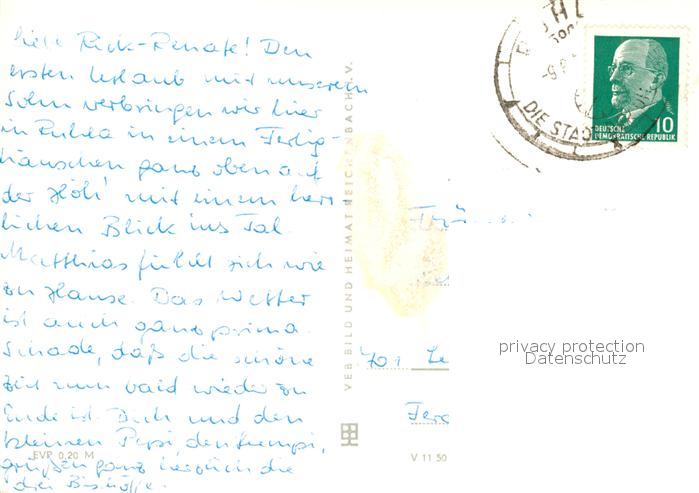 Liebe Rick-Renate! Den
ersten Urlaub mit unserem
Sohn verbringen wir hier
in Ruhla in einem Fertig-
häuschen ganz oben auf
der Höh' mit einem herr
lichen Blick ins Tal.
Matthias fühlt sich wie
zu Hause. Das Wetter
ist auch ganz prima.
Schade, daß die schöne
Zeit nun bald wieder zu
Ende ist. Dich und den
kleinen Pepi, den
grüßen ganz herzlich die
drei
EVP 0,20 M
VEB BILD UND HEIMAT REICHENBACH I. V.
V 11 50
DIE STAD
DEUTSCHE
DEMOKRATISCHE REPUBLIK
10
701 Le
privacy protection
Datenschutz